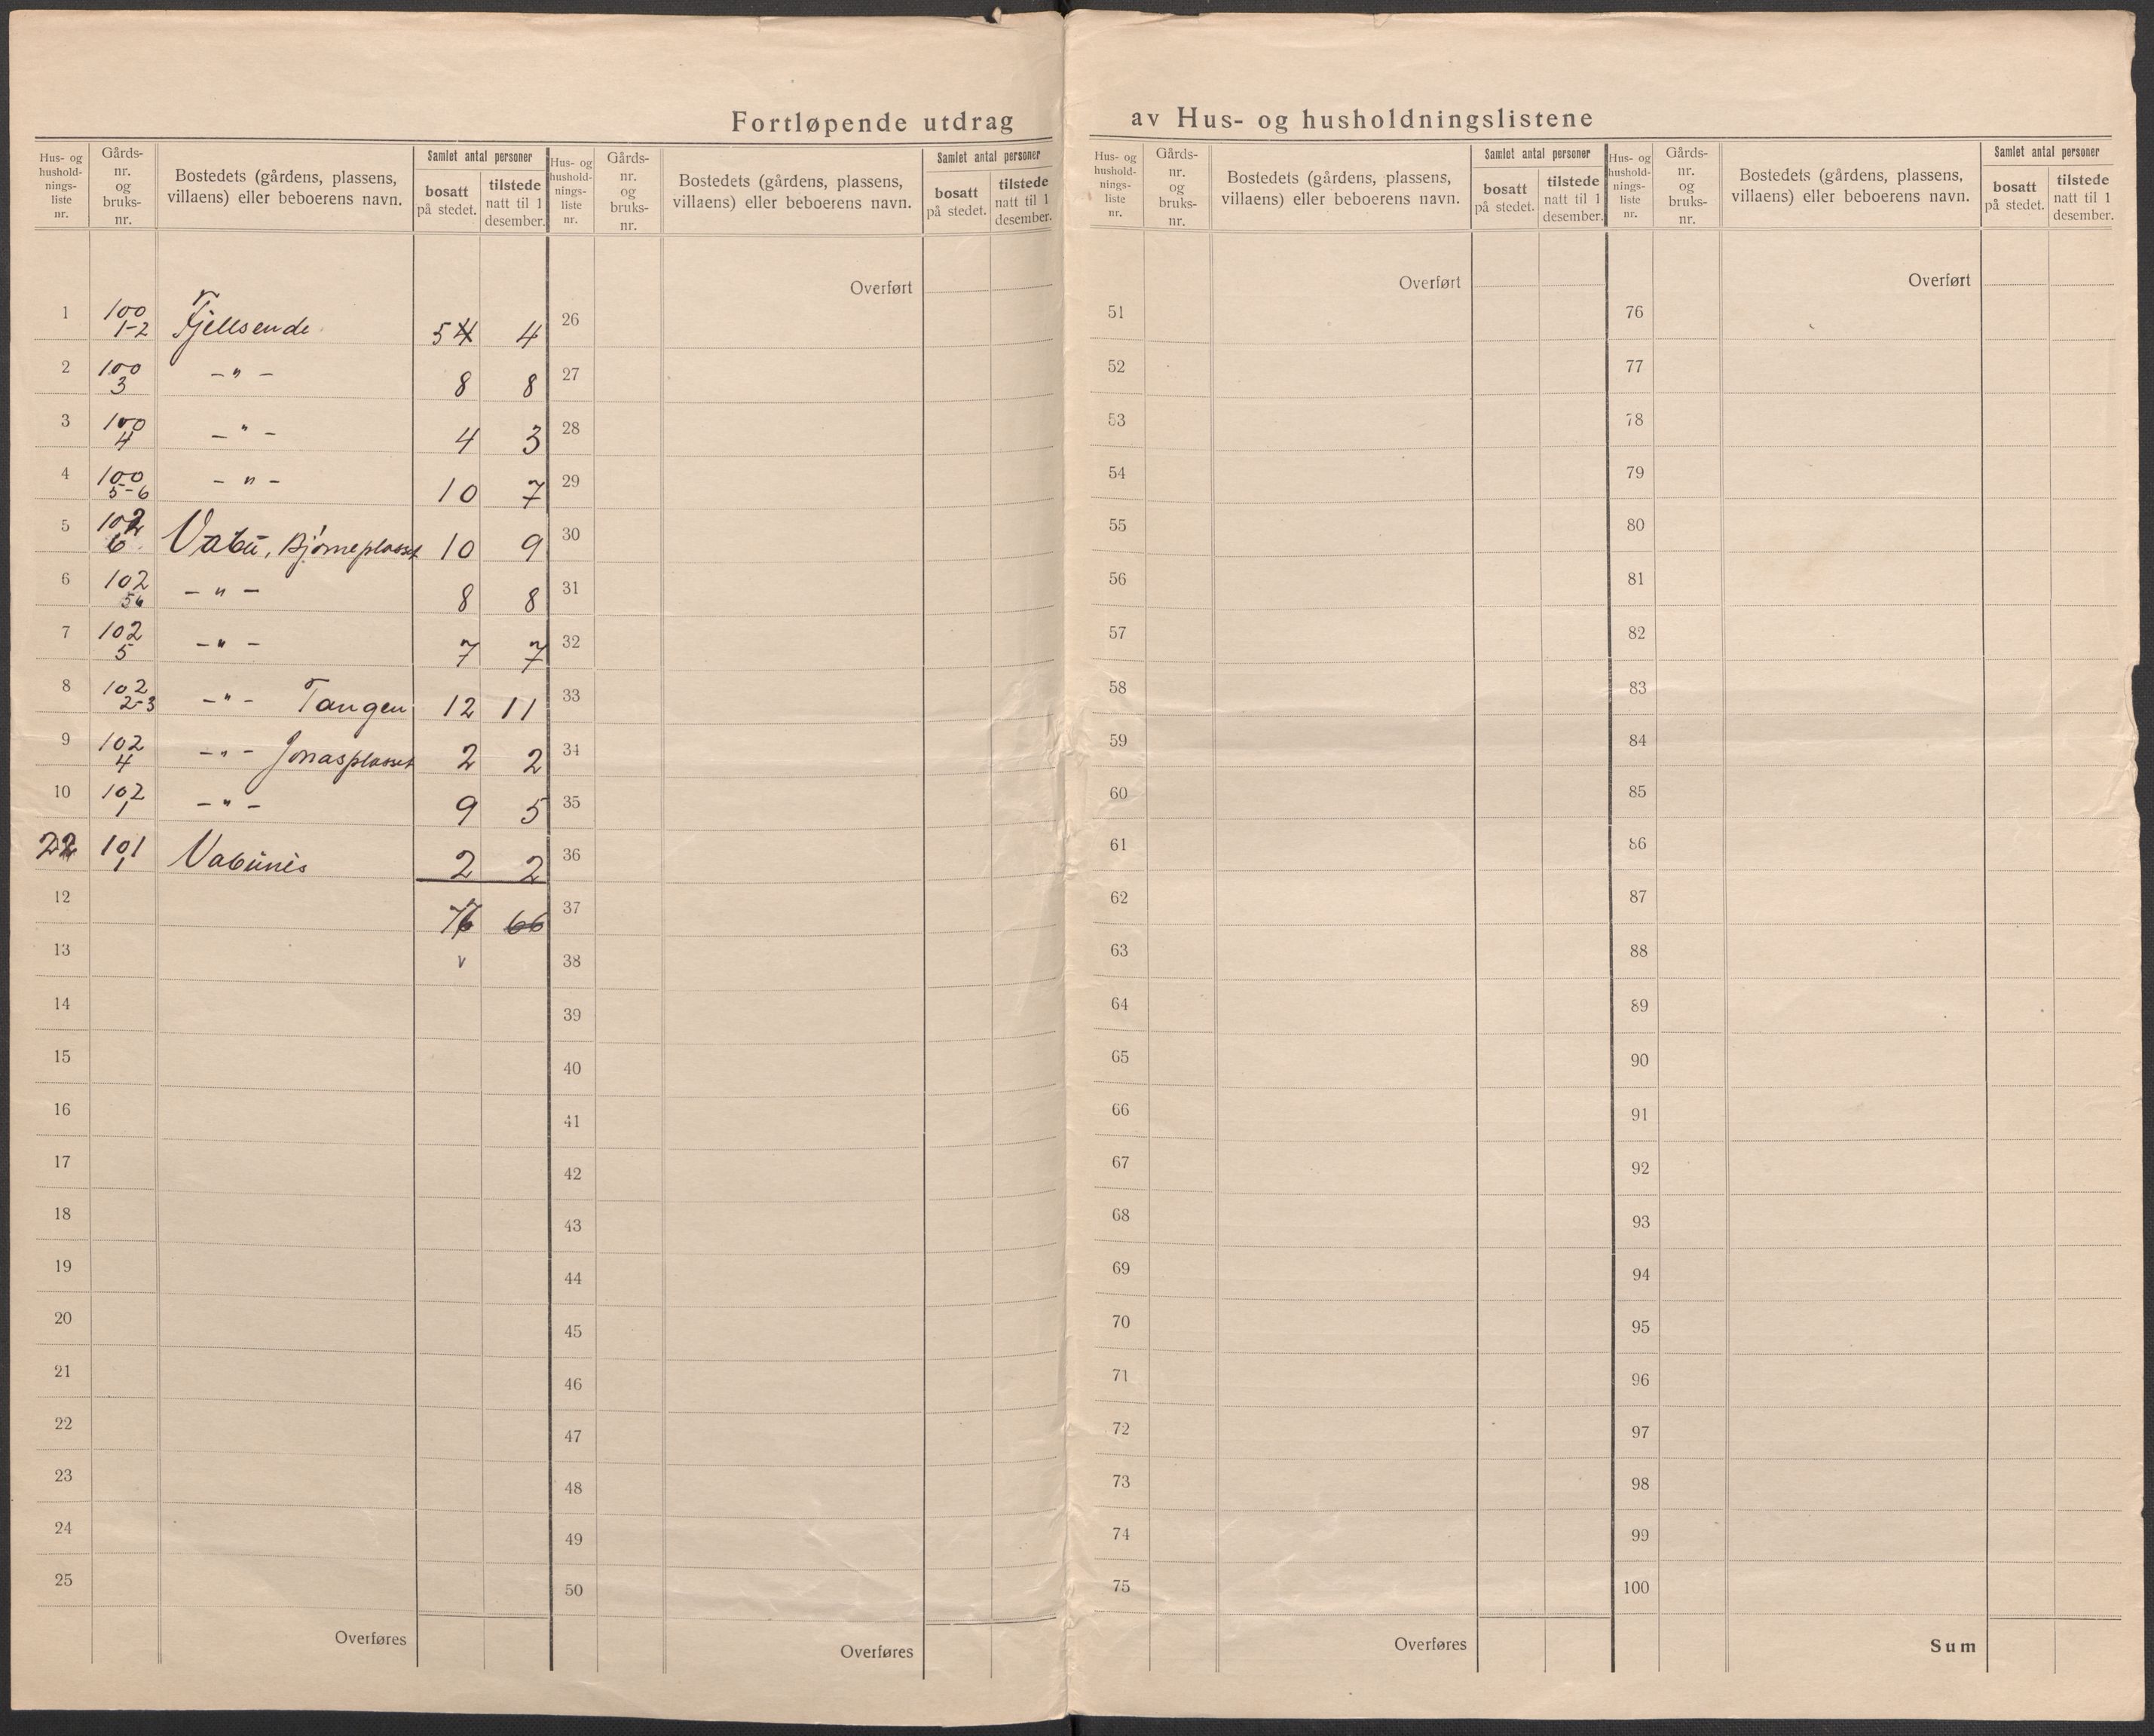 Fortløpende utdrag av Hus- og husholdningslistene
Hus- og
hushold-
nings-
liste
nr.
Gårds-
nr.
og
bruks-
nr.
Bostedets (gårdens, plassens,
villaens) eller beboerens navn.
Samlet antal personer
bosatt
på stedet.
tilstede
natt til 1
desember.
1 100 1-2 Fjellsende 5 4 4
2 100 3 -"- 8 8
3 100 4 -"- 4 3
4 100 5-6 -"- 10 7
5 102 6 Vabu, Bjørneplasset 10 9
6 102 -"- 8 8
7 102 5 -"- 7 7
8 102 2-3 -"- Tangen 12 11
9 102 4 -"- Jonasplasset 2 2
10 102 1 -"- 9 5
22 101 1 2 2
12 66
13 v
14
15
16
17
18
19
20
21
22
23
24
25
Overføres
Hus- og
hushold-
nings-
liste
nr.
Gårds-
nr.
og
bruks-
nr.
Bostedets (gårdens, plassens,
villaens) eller beboerens navn.
Samlet antal personer
bosatt
på stedet.
tilstede
natt til 1
desember.
Overført
26
27
28
29
30
31
32
33
34
35
36
37
38
39
40
41
42
43
44
45
46
47
48
49
50
Overføres
Hus- og
hushold-
nings-
liste
nr.
Gårds-
nr.
og
bruks-
nr.
Bostedets (gårdens, plassens,
villaens) eller beboerens navn.
Samlet antal personer
bosatt
på stedet.
tilstede
natt til 1
desember.
Overført
51
52
53
54
55
56
57
58
59
60
61
62
63
64
65
66
67
68
69
70
71
72
73
74
75
Overføres
Hus- og
hushold-
nings-
liste
nr.
Gårds-
nr.
og
bruks-
nr.
Bostedets (gårdens, plassens,
villaens) eller beboerens navn.
Samlet antal personer
bosatt
på stedet.
tilstede
natt til 1
desember.
Overført
76
77
78
79
80
81
82
83
84
85
86
87
88
89
90
91
92
93
94
95
96
97
98
99
100
Sum